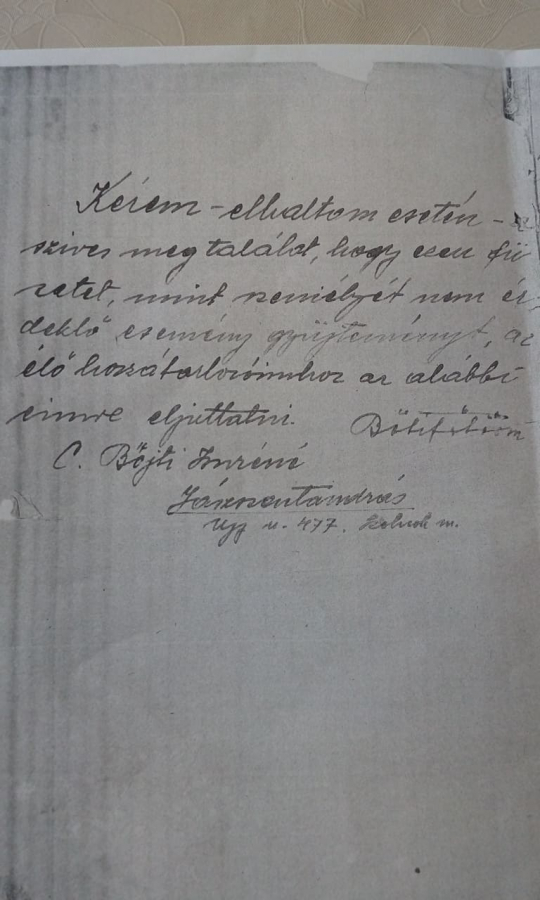 Kérem - elhaltom esetén -
szives megtalálót, hogy ezen fü
zetet, mint személyét nem ér-
deklő esemény gyüjteményt, az
élő hozzátartozóimhoz az alábbi
cimre eljuttatni.
C. Böjti Imréné
Jászszentandrás
u. 477. Szolnok m.